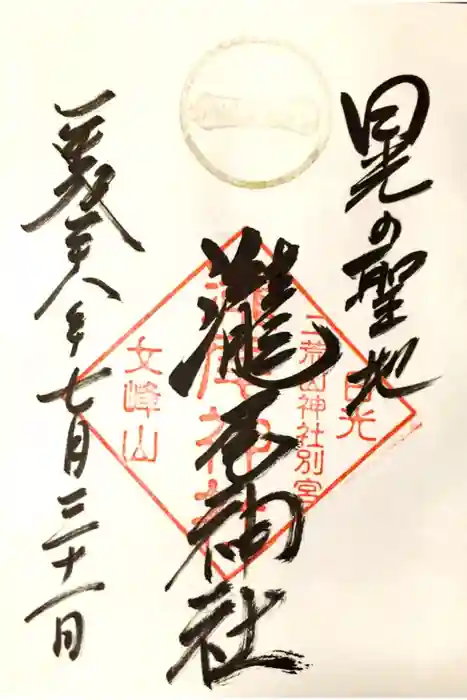 日光の聖地
瀧尾神社
平成二十八年七月三十一日
日光
二荒山神社別宮
瀧尾神社
女峰山